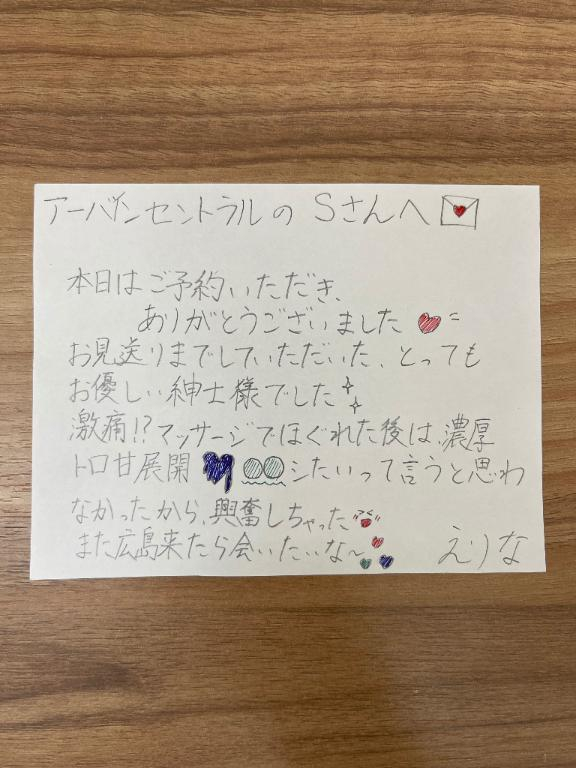 アーバインセントラルの Sさんへ
本日はご予約いただき、
ありがとうございました
お見送りまでしていただいた、とっても
お優しい紳士様でした
激痛!?マッサージでほぐれた後は、濃厚
トロ甘展開 〇〇シたいって言うと思わ
なかったから、興奮しちゃった
また広島来たら会いたいな〜
えりな